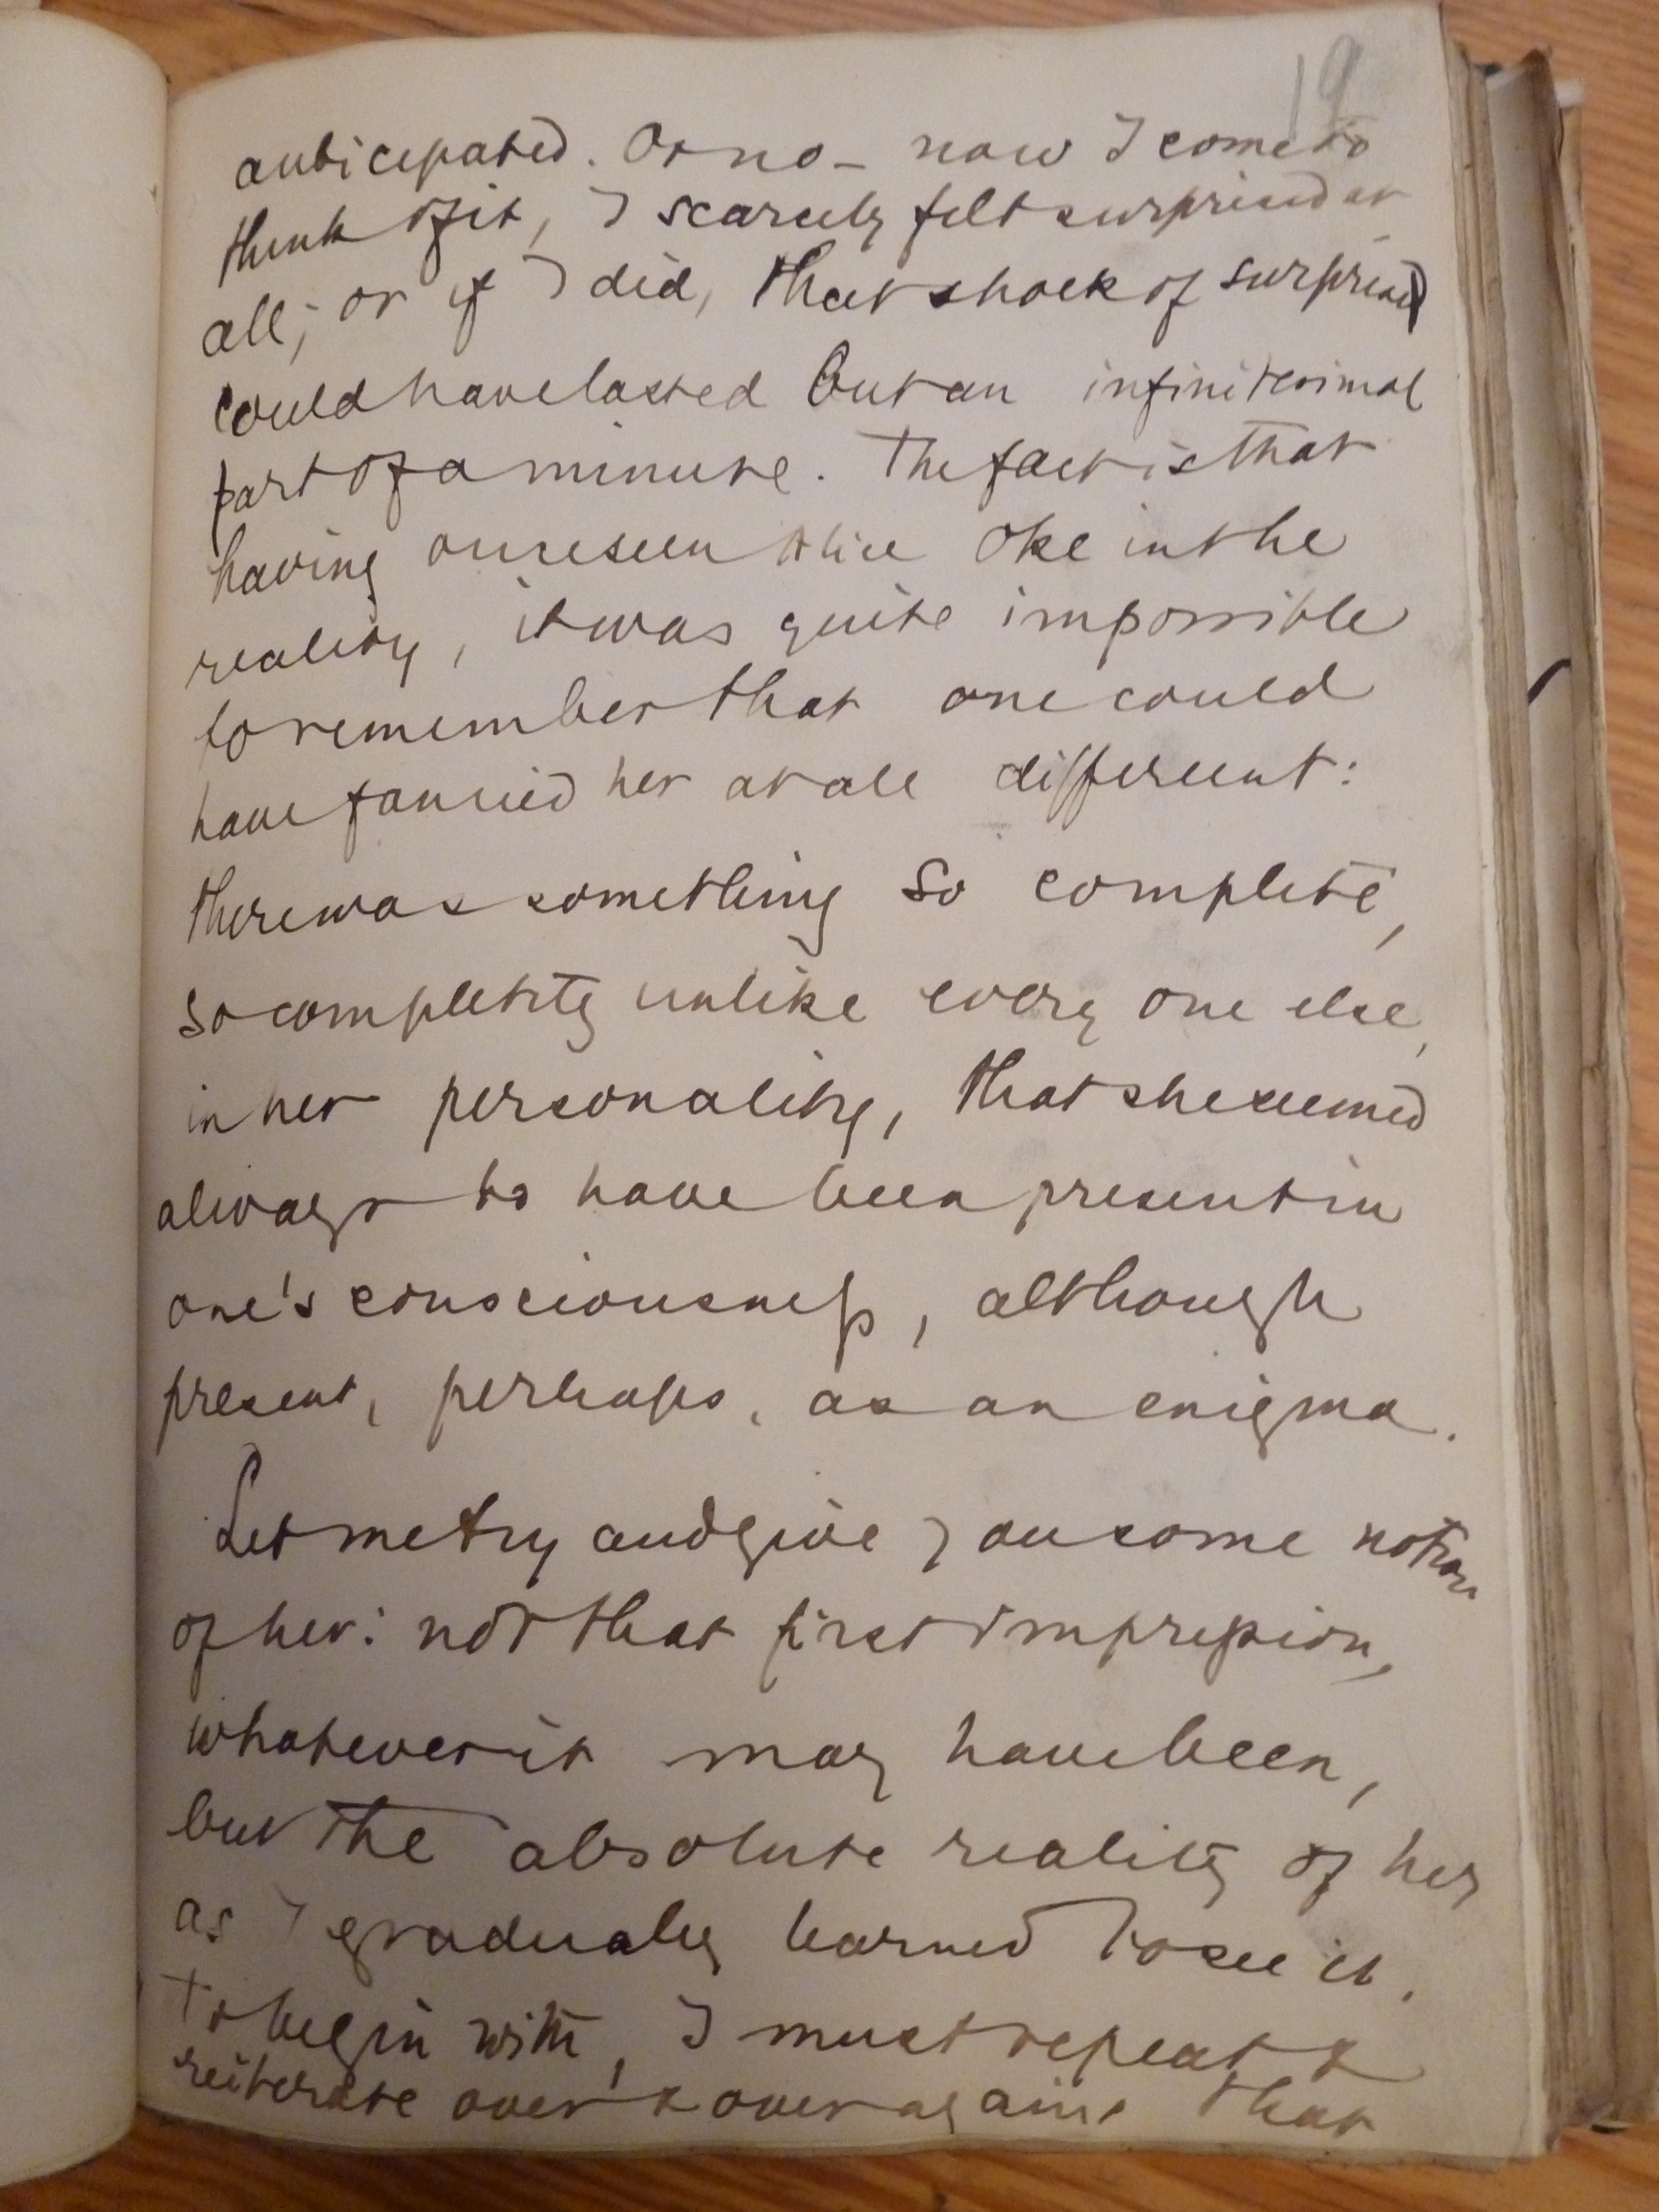 19
anticipated. Or no – now I come to
think of it, I scarcely felt surprised at
all; or if I did, that shock of surprise
could have lasted but an infinitesimal
part of a minute. The fact is that
having once seen Alice Oke in the
reality, it was quite impossible
to remember that one could
have fancied her at all different:
there was something so complete,
so completely unlike every one else,
in her personality, that she seemed
always to have been present in
one's consciousness, although
present, perhaps, as an enigma.
Let me try and give you some notion
of her: not that first impression,
whatever it may have been,
but the absolute reality of her
as I gradually learned to see it.
To begin with, I must repeat &
reiterate over & over again that